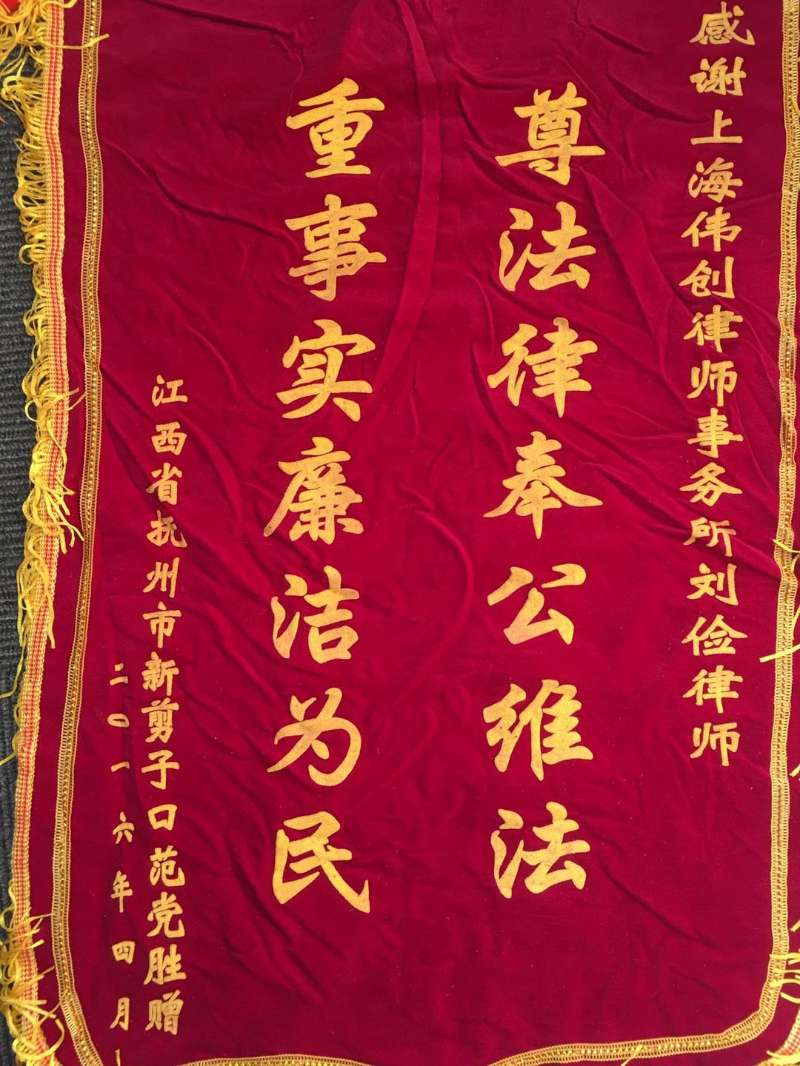 感谢上海伟创律师事务所刘俭律师
尊法律奉公维法
重事实廉洁为民
江西省抚州市新剪子口范党胜赠
二〇一六年四月